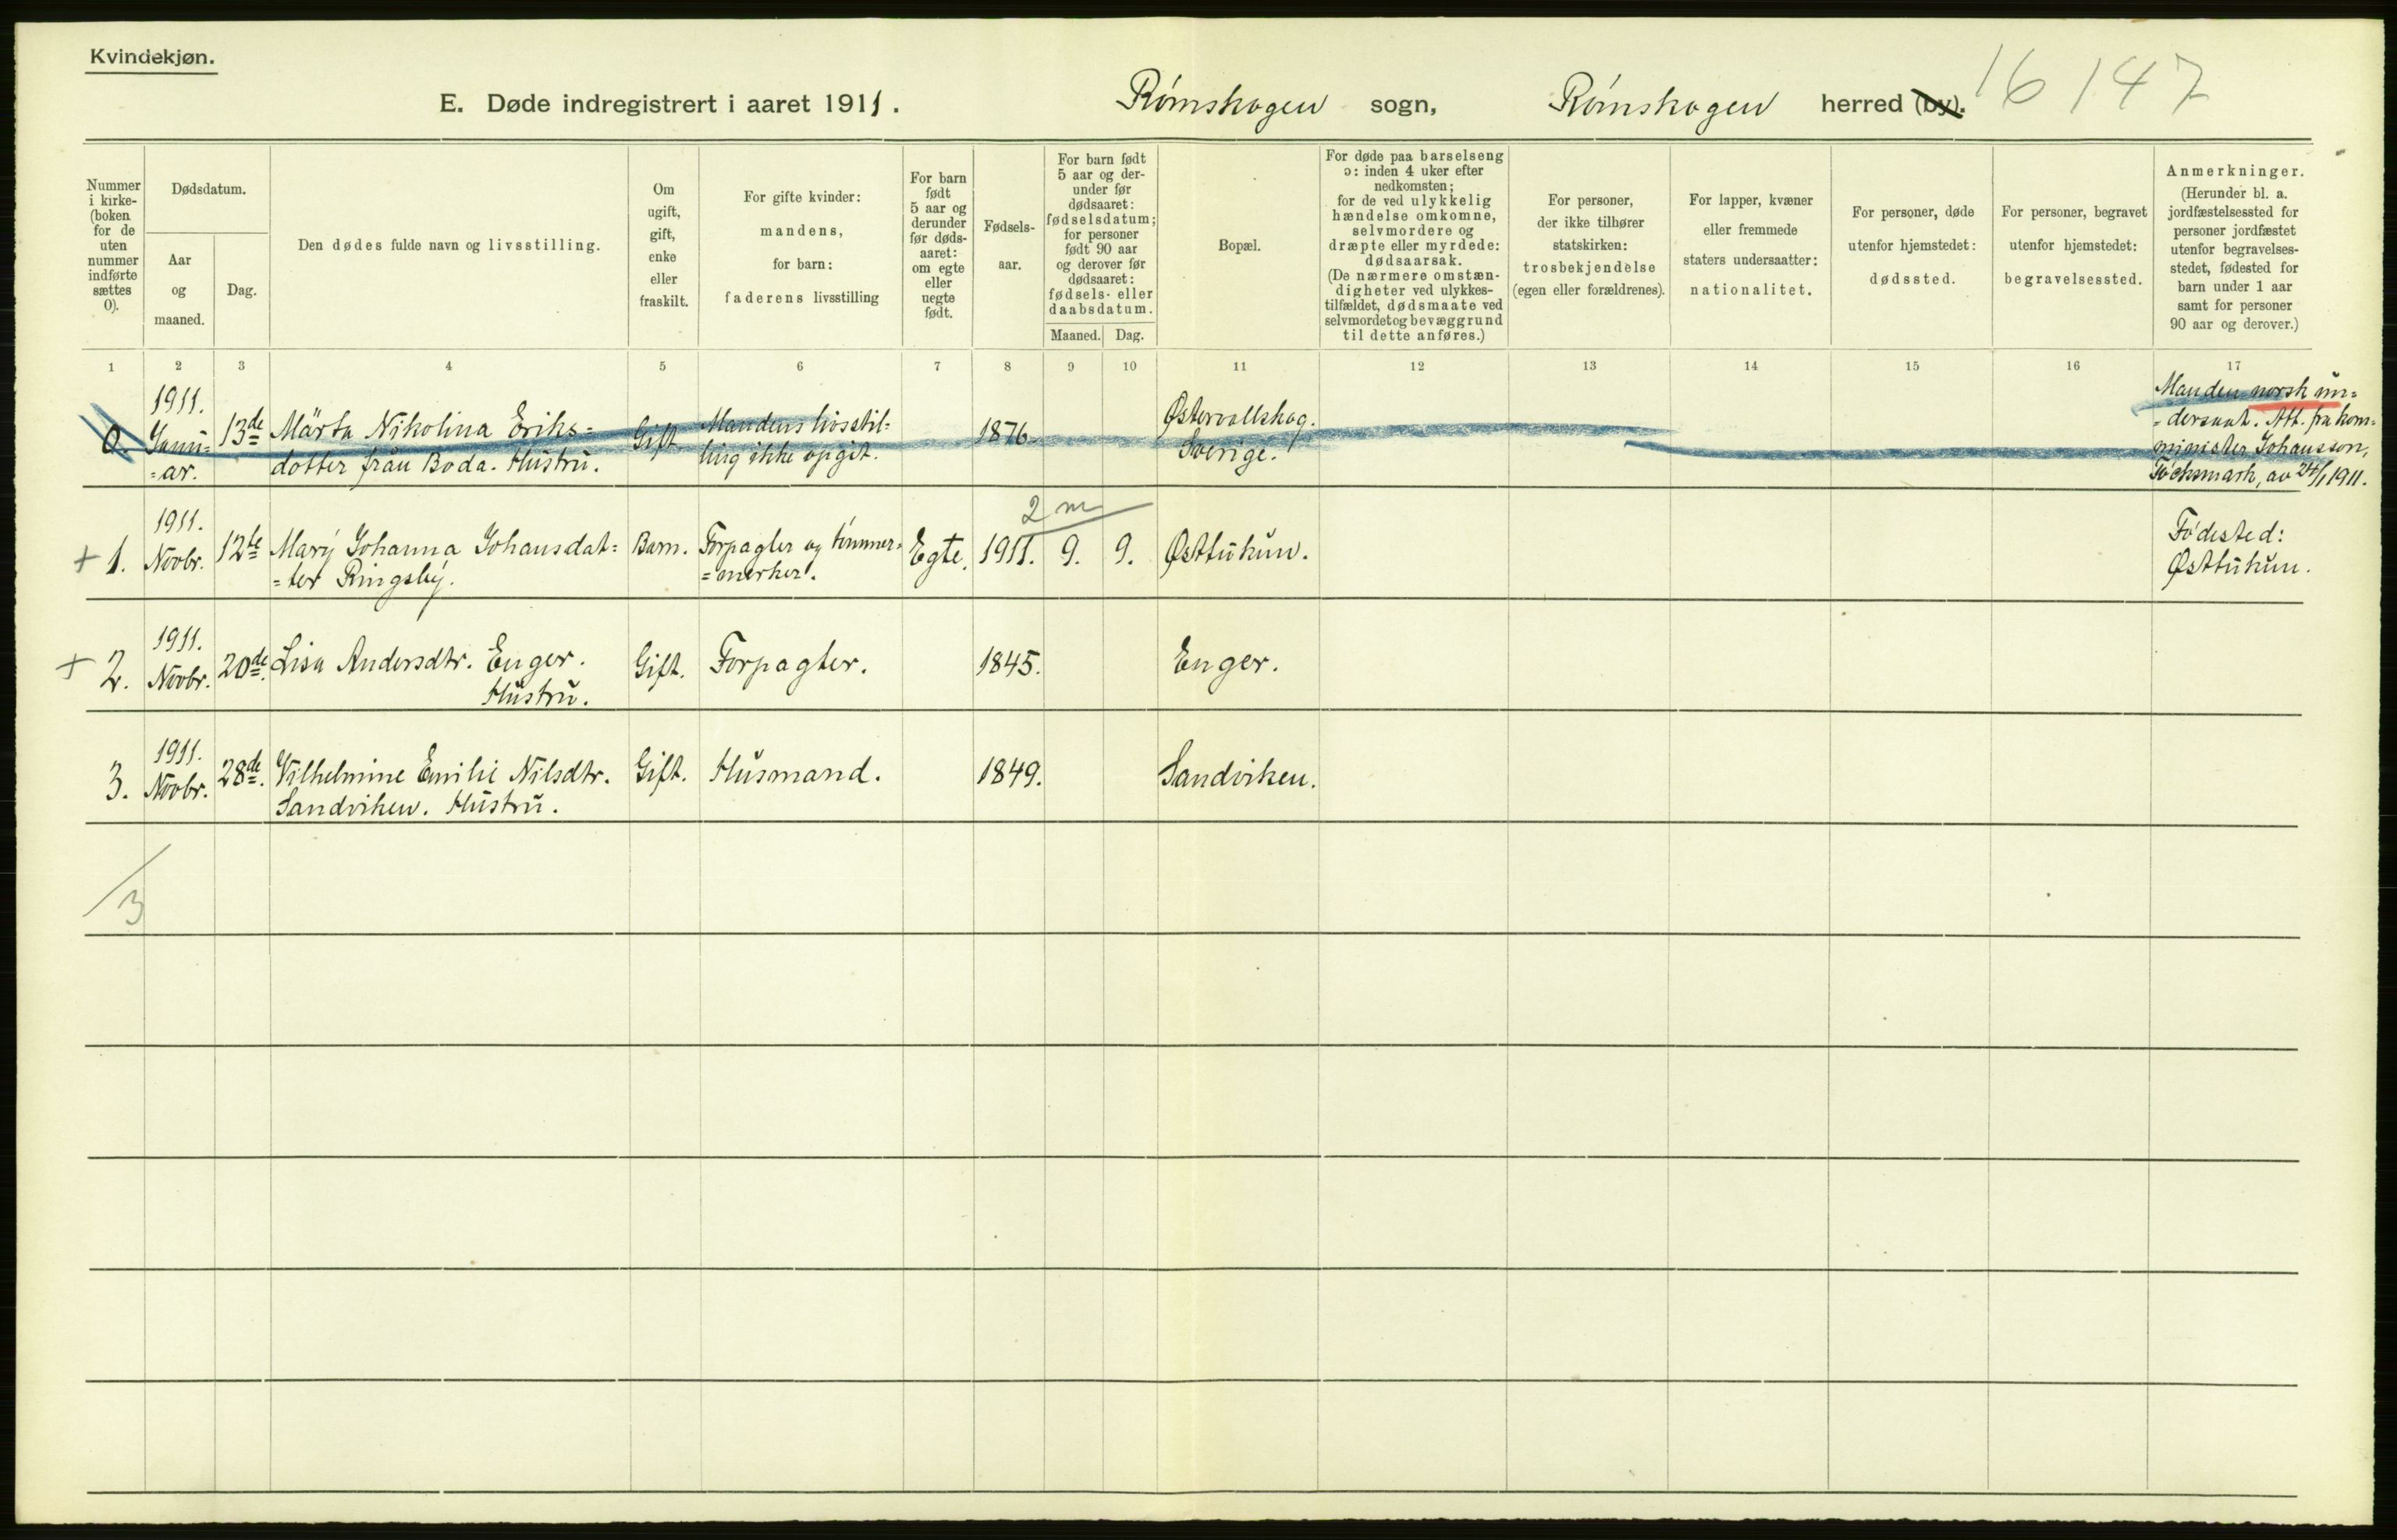 Kvindekjøn.
E. Døde indregistrert i aaret 1911. Rømskogen sogn, Rømskogen herred (by). 16 147
Nummer i kirke- (boken for de uten nummer indførte sættes 0).
Dødsdatum.
Aar og maaned.
Dag.
Den dødes fulde navn og livsstilling.
Om ugift, gift, enke eller fraskilt.
For gifte kvinder: mandens, for barn: faderens livsstilling
For barn født 5 aar og derunder før døds- aaret: om egte eller uegte født.
Fødsels- aar.
For barn født 5 aar og der- under før dødsaaret: fødselsdatum; for personer født 90 aar og derover før dødsaaret: fødsels- eller daabsdatum.
Maaned. Dag.
Bopæl.
For døde paa barselseng ɔ: inden 4 uker efter nedkomsten; for de ved ulykkelig hændelse omkomne, selvmordere og dræpte eller myrdede: dødsaarsak. (De nærmere omstæn- digheter ved ulykkes- tilfældet, dødsmaate ved selvmordet og bevæggrund til dette anføres.)
For personer, der ikke tilhører statskirken: trosbekjendelse (egen eller forældrenes).
For lapper, kvæner eller fremmede staters undersaatter: nationalitet.
For personer, døde utenfor hjemstedet: dødssted.
For personer, begravet utenfor hjemstedet: begravelsessted.
Anmerkninger. (Herunder bl. a. jordfæstelsessted for personer jordfæstet utenfor begravelses- stedet, fødested for barn under 1 aar samt for personer 90 aar og derover.)
1 2 3 4 5 6 7 8 9 10 11 12 13 14 15 16 17
0. 1911. Janu= =ar. 13de Märta Nikolina Eriks= dotter från Boda. Hustru. Gift. Mandens livsstil= ling ikke opgit. 1876. Østervallskog. Sverige. Manden norsk un= =dersaat. Att. fra kom= minister Johansson, Töcksmark, av 24/1 1911.
2 m
+ 1. 1911. Novbr. 12te Mary Johanna Johansdat= =ter Ringsby. Barn. Forpagter og tømmer= =merker. Egte. 1911. 9. 9. Østtukun. Fødested: Østtukun.
+ 2. 1911. Novbr. 20de. Lisa Andersdtr. Enger. Hustru. Gift. Forpagter. 1845. Enger.
3. 1911. Novbr. 28de. Vilhelmine Emilie Nilsdtr. Sandviken. Hustru. Gift. Husmand. 1849. Sandviken.
3